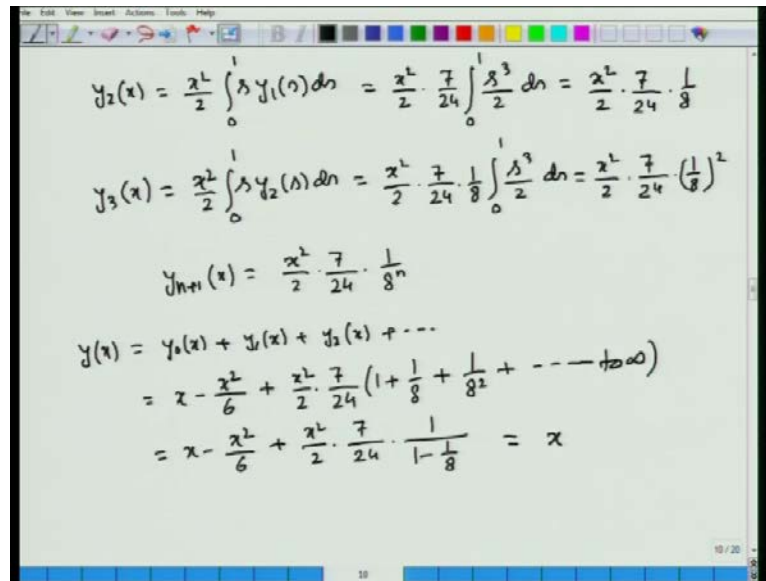 File Edit View Insert Actions Tools Help
y₂(x) = x²/2 ∫₀¹ s y₁(s) ds = x²/2 · 7/24 ∫₀¹ s³/2 ds = x²/2 · 7/24 · 1/8
y₃(x) = x²/2 ∫₀¹ s y₂(s) ds = x²/2 · 7/24 · 1/8 ∫₀¹ s³/2 ds = x²/2 · 7/24 · (1/8)²
yₙ₊₁(x) = x²/2 · 7/24 · 1/8ⁿ
y(x) = y₀(x) + y₁(x) + y₂(x) + ···
= x - x²/6 + x²/2 · 7/24 (1 + 1/8 + 1/8² + ---- to ∞)
= x - x²/6 + x²/2 · 7/24 · 1/(1 - 1/8) = x
10 / 20
10